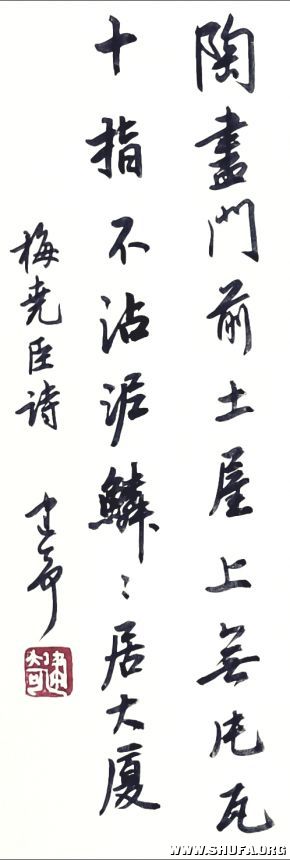 陶盡門前土屋上無片瓦
十指不沾泥鱗〻居大厦
梅尭臣诗 建奇
建奇
WWW.SHUFA.ORG